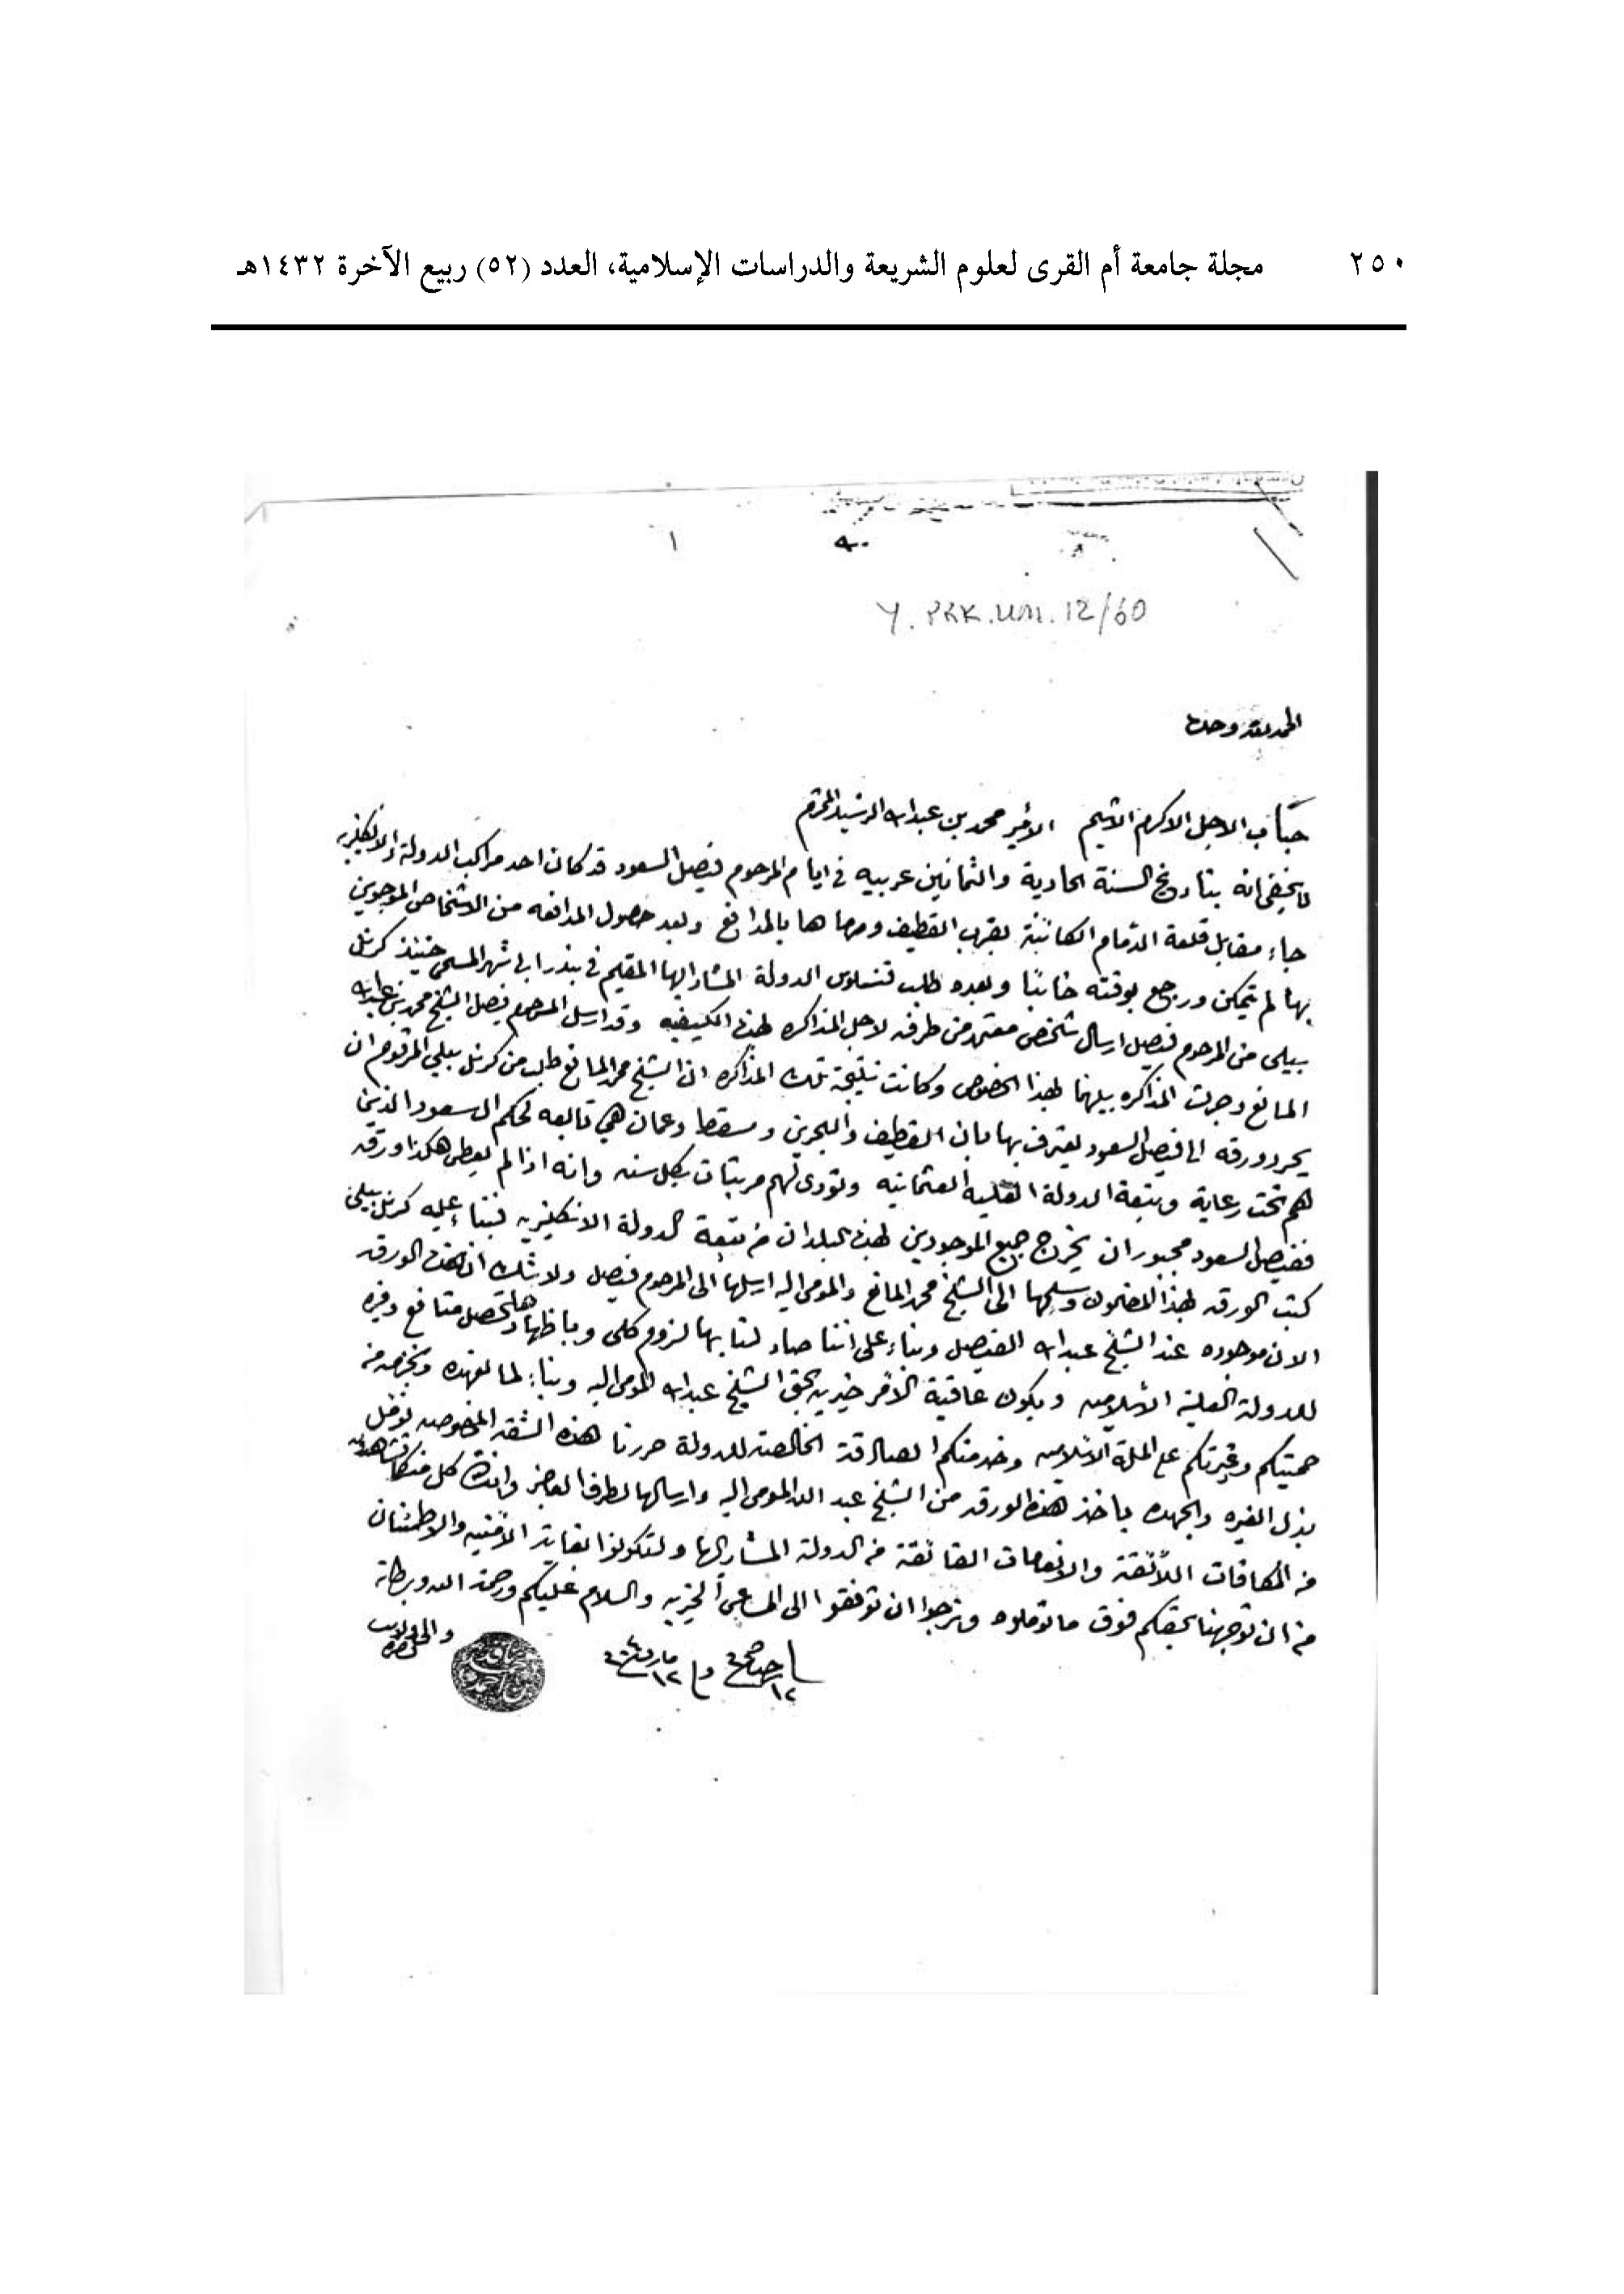 ٢٥٠ مجلة جامعة أم القرى لعلوم الشريعة والدراسات الإسلامية، العدد (٥٢) ربيع الآخرة ١٤٣٢هـ
١
Y. PRK. UM. 12/60
الحمد لله وحده
جناب الاجل الاكرم الاشيم الأمير محمد بن عبدالله الرشيد المحترم
لا يخفى انه بتاريخ السنة الحادية والثمانين عربيه في ايام المرحوم فيصل السعود قد كان احد مراكب الدولة الانكليزيه
جاء مقابل قلعة الدمام الكائنة بقرب القطيف ورماها بالمدافع وبعد حصول المدافعه من الاشخاص الموجودين
بها لم يتمكن ورجع بوقته خائبا وبعده طلب قنسلوس الدولة المشار اليها المقيم في بندر ابي شهر المسمى حينئذ كرنل
بيلى من المرحوم فيصل ارسال شخص معتمد من طرفه لاجل المذاكره لهذه الكيفيه وقد ارسل المرحوم فيصل الشيخ محمد بن عبدالله
المانع وجرت المذاكره بينهما لهذا الخصوص وكانت نتيجة تلك المذاكره ان الشيخ محمد المانع طلب من كرنل بيلي المرقوم ان
يحرر ورقه الى فيصل السعود يعترف بها بان القطيف والبحرين ومسقط وعمان هي تابعه لحكم ال سعود الذين
هم تحت رعاية وتبعة الدولة العلية العثمانيه وتودى لهم مرتبات بكل سنه وانه اذا لم يعطى هكذا ورقه
ففيصل السعود مجبور ان يخرج جميع الموجودين لهذه البلدان من تبعة الدولة الانكليزيه فبناء عليه كرنل بيلى
كتب الورقه لهذا المضمون وسلمها الى الشيخ محمد المانع والمومى اليه ارسلها الى المرحوم فيصل ولا شك ان هذه الورقه
الان موجوده عند الشيخ عبدالله الفيصل وبناء على اننا صار لنا بها لزوم كلى وباظهارها تحصل منافع وفيره
للدولة العلية الاسلاميه ويكون عاقبة الأمر خيريه بحق الشيخ عبدالله المومى اليه وبناء لما نعهده ونجزمه من
حميتكم وغيرتكم على الملة الاسلاميه وخدمتكم الصادقة الخالصه للدولة حررنا هذه الشقه المخصوصه نومل
بذل الغيره والجهد باخذ هذه الورقه من الشيخ عبد الله المومى اليه وارسالها لطرفنا
من المكافات اللائقة والانعامات الفائقة من الدولة المشار اليها ولتكونوا بغاية الأمنيه والاطمئنان
من ان توجهنا بحقكم فوق ما توملوه ونرجوا ان توفقوا الى المساعى الخيريه والسلام عليكم ورحمة الله وبركاته